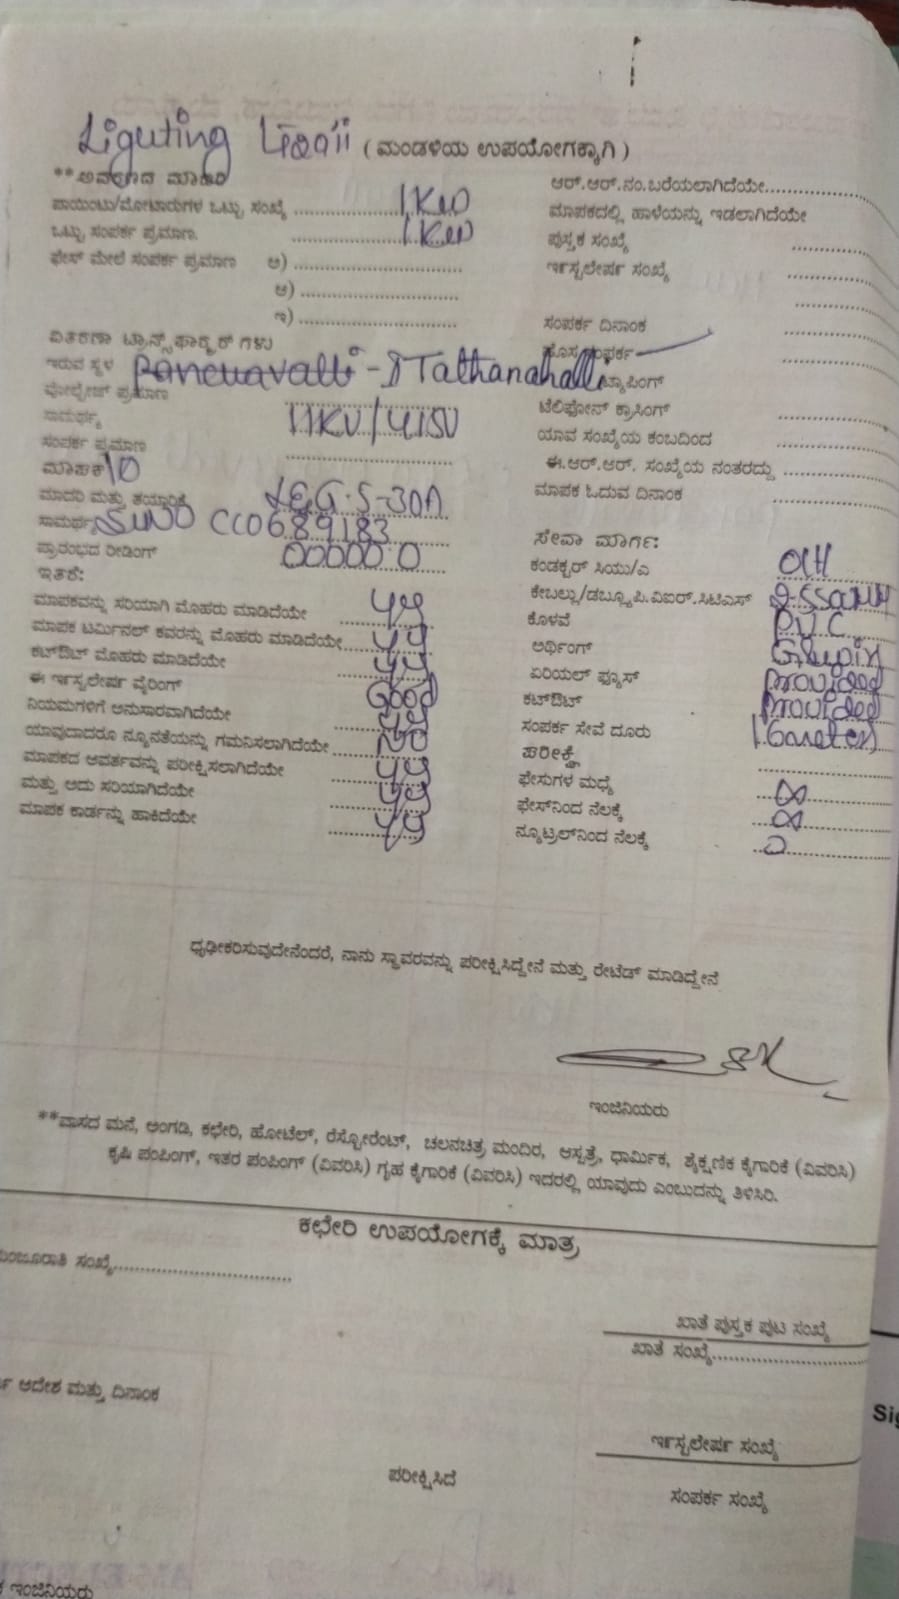 Lighting
( ಮಂಡಳಿಯ ಉಪಯೋಗಕ್ಕಾಗಿ )
**ಆವರಣದ ಮಾಹಿತಿ
ಪಾಯಿಂಟು/ಮೋಟಾರುಗಳ ಒಟ್ಟು ಸಂಖ್ಯೆ 1KW
ಒಟ್ಟು ಸಂಪರ್ಕ ಪ್ರಮಾಣ. 1KW
ಫೇಸ್ ಮೇಲೆ ಸಂಪರ್ಕ ಪ್ರಮಾಣ ಅ)
ಆ)
ಇ)
ವಿತರಣಾ ಟ್ರಾನ್ಸ್‌ಫಾರ್ಮರ್ ಗಳು
ಇರುವ ಸ್ಥಳ Tathanahalli
ವೋಲ್ಟೇಜ್ ಪ್ರಮಾಣ
ಸಾಮರ್ಥ್ಯ 11KV/415V
ಸಂಪರ್ಕ ಪ್ರಮಾಣ
ಮಾಪಕ 1Ø
ಮಾದರಿ ಮತ್ತು ತಯಾರಿಕೆ 5-30A
ಸಾಮರ್ಥ್ಯ SLNO CC0689183
ಪ್ರಾರಂಭದ ರೀಡಿಂಗ್ 00000.0
ಇತರೆ:
ಮಾಪಕವನ್ನು ಸರಿಯಾಗಿ ಮೊಹರು ಮಾಡಿದೆಯೇ yes
ಮಾಪಕ ಟರ್ಮಿನಲ್ ಕವರನ್ನು ಮೊಹರು ಮಾಡಿದೆಯೇ yes
ಕಟ್‌ಔಟ್ ಮೊಹರು ಮಾಡಿದೆಯೇ yes
ಈ ಇನ್ಸ್ಟಲೇಷನ್ ವೈರಿಂಗ್ Good
ನಿಯಮಗಳಿಗೆ ಅನುಸಾರವಾಗಿದೆಯೇ yes
ಯಾವುದಾದರೂ ನ್ಯೂನತೆಯನ್ನು ಗಮನಿಸಲಾಗಿದೆಯೇ No
ಮಾಪಕದ ಆವರ್ತವನ್ನು ಪರೀಕ್ಷಿಸಲಾಗಿದೆಯೇ yes
ಮತ್ತು ಅದು ಸರಿಯಾಗಿದೆಯೇ yes
ಮಾಪಕ ಕಾರ್ಡನ್ನು ಹಾಕಿದೆಯೇ yes
ಆರ್.ಆರ್.ನಂ.ಬರೆಯಲಾಗಿದೆಯೇ
ಮಾಪಕದಲ್ಲಿ ಹಾಳೆಯನ್ನು ಇಡಲಾಗಿದೆಯೇ
ಪುಸ್ತಕ ಸಂಖ್ಯೆ
ಇನ್ಸ್ಟಲೇಷನ್ ಸಂಖ್ಯೆ
ಸಂಪರ್ಕ ದಿನಾಂಕ
ಹೊಸ ಸಂಪರ್ಕ
ಟ್ಯಾಪಿಂಗ್
ಟೆಲಿಫೋನ್ ಕ್ರಾಸಿಂಗ್
ಯಾವ ಸಂಖ್ಯೆಯ ಕಂಬದಿಂದ
ಈ.ಆರ್.ಆರ್. ಸಂಖ್ಯೆಯ ನಂತರದ್ದು
ಮಾಪಕ ಓದುವ ದಿನಾಂಕ
ಸೇವಾ ಮಾರ್ಗ:
ಕಂಡಕ್ಟರ್ ಸಿಯು/ಎ OH
ಕೇಬಲ್ಲು/ಡಬ್ಲ್ಯೂಪಿ.ವಿಐಆರ್.ಸಿಟಿಎಸ್
ಕೊಳವೆ P.V.C
ಅರ್ಥಿಂಗ್
ಏರಿಯಲ್ ಫ್ಯೂಸ್ Provided
ಕಟ್‌ಔಟ್ Provided
ಸಂಪರ್ಕ ಸೇವೆ ದೂರು
ಪರೀಕ್ಷೆ
ಫೇಸುಗಳ ಮಧ್ಯೆ ∞
ಫೇಸ್‌ನಿಂದ ನೆಲಕ್ಕೆ ∞
ನ್ಯೂಟ್ರಲ್‌ನಿಂದ ನೆಲಕ್ಕೆ
ಧೃಢೀಕರಿಸುವುದೇನೆಂದರೆ, ನಾನು ಸ್ಥಾವರವನ್ನು ಪರೀಕ್ಷಿಸಿದ್ದೇನೆ ಮತ್ತು ರೇಟೆಡ್ ಮಾಡಿದ್ದೇನೆ
ಇಂಜಿನಿಯರು
**ವಾಸದ ಮನೆ, ಅಂಗಡಿ, ಕಛೇರಿ, ಹೋಟೆಲ್, ರೆಸ್ಟೋರೆಂಟ್, ಚಲನಚಿತ್ರ ಮಂದಿರ, ಆಸ್ಪತ್ರೆ, ಧಾರ್ಮಿಕ, ಶೈಕ್ಷಣಿಕ ಕೈಗಾರಿಕೆ (ವಿವರಿಸಿ)
ಕೃಷಿ ಪಂಪಿಂಗ್, ಇತರ ಪಂಪಿಂಗ್ (ವಿವರಿಸಿ) ಗೃಹ ಕೈಗಾರಿಕೆ (ವಿವರಿಸಿ) ಇದರಲ್ಲಿ ಯಾವುದು ಎಂಬುದನ್ನು ತಿಳಿಸಿರಿ.
ಕಛೇರಿ ಉಪಯೋಗಕ್ಕೆ ಮಾತ್ರ
ಮಂಜೂರಾತಿ ಸಂಖ್ಯೆ
ಖಾತೆ ಪುಸ್ತಕ ಪುಟ ಸಂಖ್ಯೆ
ಖಾತೆ ಸಂಖ್ಯೆ
ಆದೇಶ ಮತ್ತು ದಿನಾಂಕ
ಇನ್ಸ್ಟಲೇಷನ್ ಸಂಖ್ಯೆ
ಪರೀಕ್ಷಿಸಿದೆ
ಸಂಪರ್ಕ ಸಂಖ್ಯೆ
ಇಂಜಿನಿಯರು